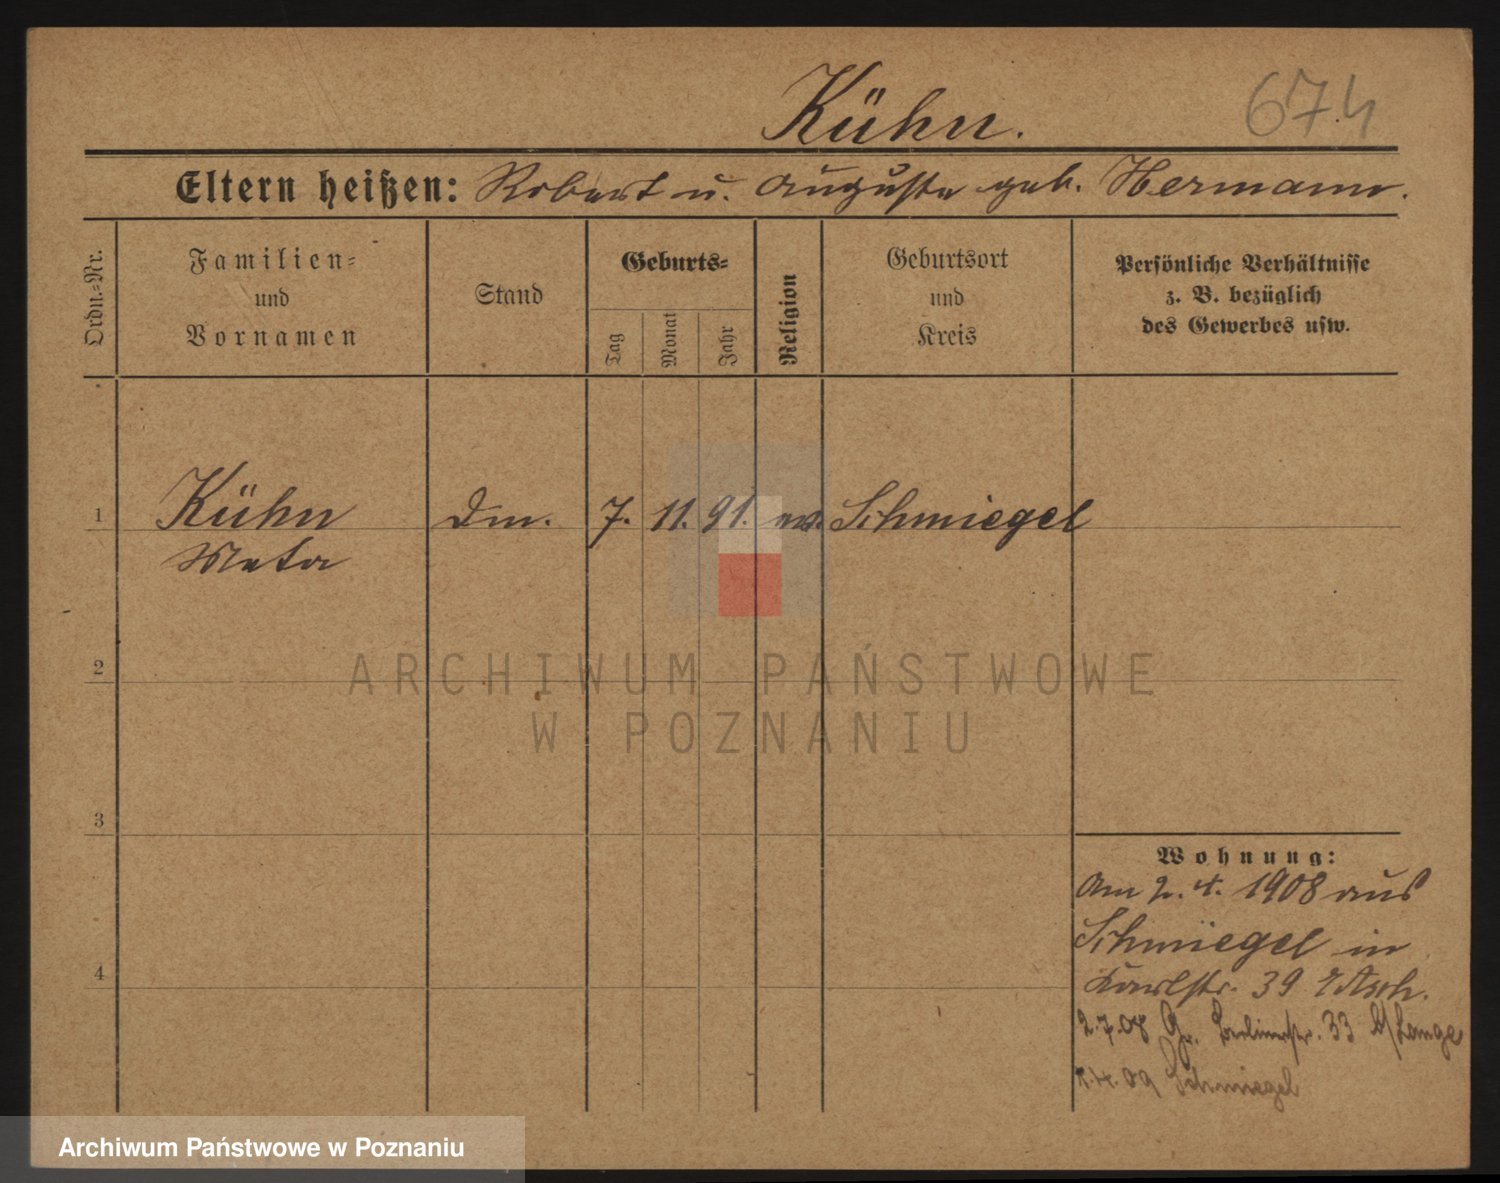 Kühn.
674
Eltern heißen: Robert u. Auguste geb. Hermann.
Ordn.-Nr.
Familien-
und
Vornamen
Stand
Geburts-
Tag
Monat
Jahr
Religion
Geburtsort
und
Kreis
Persönliche Verhältnisse
z. B. bezüglich
des Gewerbes usw.
1
Kühn
Meta
Dm. 7. 11. 91. ev. Schmiegel
2
ARCHIWUM PAŃSTWOWE
W POZNANIU
3
4
Wohnung:
Am 2. 4. 1908 aus
Schmiegel in
Karlstr. 39
2.7.08 Gr. Berlinerstr. 33 b/Lange
4.09 Schmiegel
Archiwum Państwowe w Poznaniu